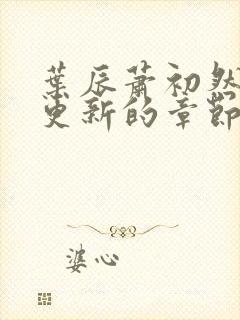 葉辰蕭初然
更新的章節
婆心